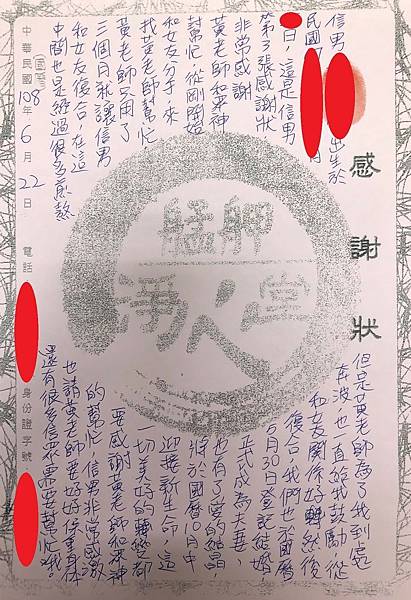 感謝狀
信男 出生於
民國 月
日,這是信男
第3張感謝狀
非常感謝
黃老師和眾神
幫忙,從剛開始
和女友分手,來
找黃老師幫忙
黃老師只用了
三個月就讓信男
和女友復合,在這
中間也是經過很多煎熬
但是黃老師為了我到處
奔波,也一直給我鼓勵,從
和女友關係好轉然後
復合,我們也於國曆
5月30日登記結婚,
正式成為夫妻,
也有了愛的結晶,
將於國曆10月中
迎接新生命,這
一切美好的轉變都
要感謝黃老師和眾神
的幫忙,信男非常感激
也請黃老師要好好保重身体
還有很多信眾需要幫忙哦。
中華民國 108年6月22日 電話: 身份證字號:
艋舺
淨人堂